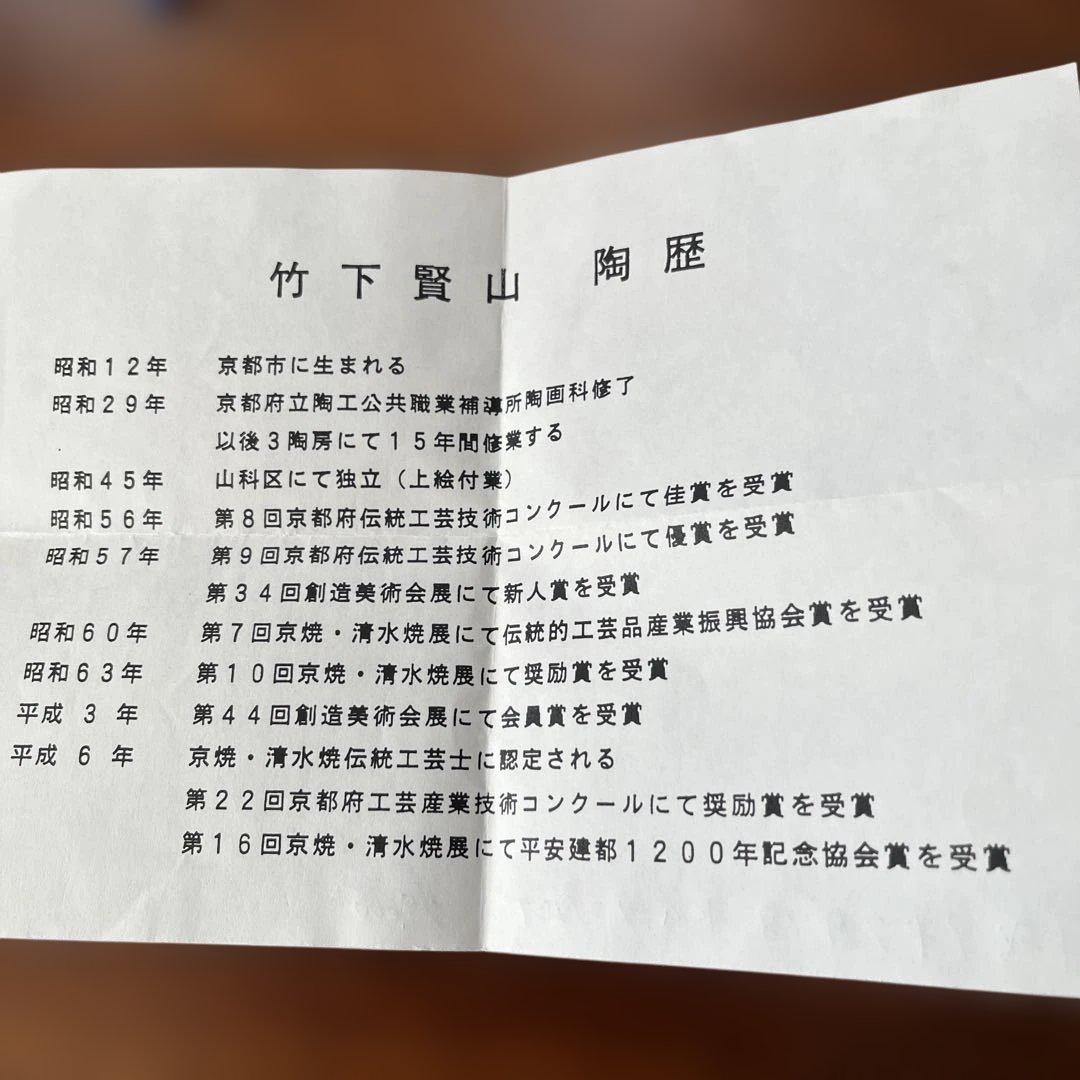 竹下賢山 陶歴
昭和12年 京都市に生まれる
昭和29年 京都府立陶工公共職業補導所陶画科修了
以後3陶房にて15年間修業する
昭和45年 山科区にて独立（上絵付業）
昭和56年 第8回京都府伝統工芸技術コンクールにて佳賞を受賞
昭和57年 第9回京都府伝統工芸技術コンクールにて優賞を受賞
第34回創造美術会展にて新人賞を受賞
昭和60年 第7回京焼・清水焼展にて伝統的工芸品産業振興協会賞を受賞
昭和63年 第10回京焼・清水焼展にて奨励賞を受賞
平成 3 年 第44回創造美術会展にて会員賞を受賞
平成 6 年 京焼・清水焼伝統工芸士に認定される
第22回京都府工芸産業技術コンクールにて奨励賞を受賞
第16回京焼・清水焼展にて平安建都1200年記念協会賞を受賞